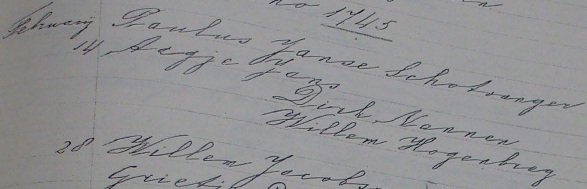 no 1745
Februarij Paulus Janse Schotvanger
14 Aegje Jans
Dirk Nannen
Willem Hogenbreg
28 Willem Jacobs
Grietje